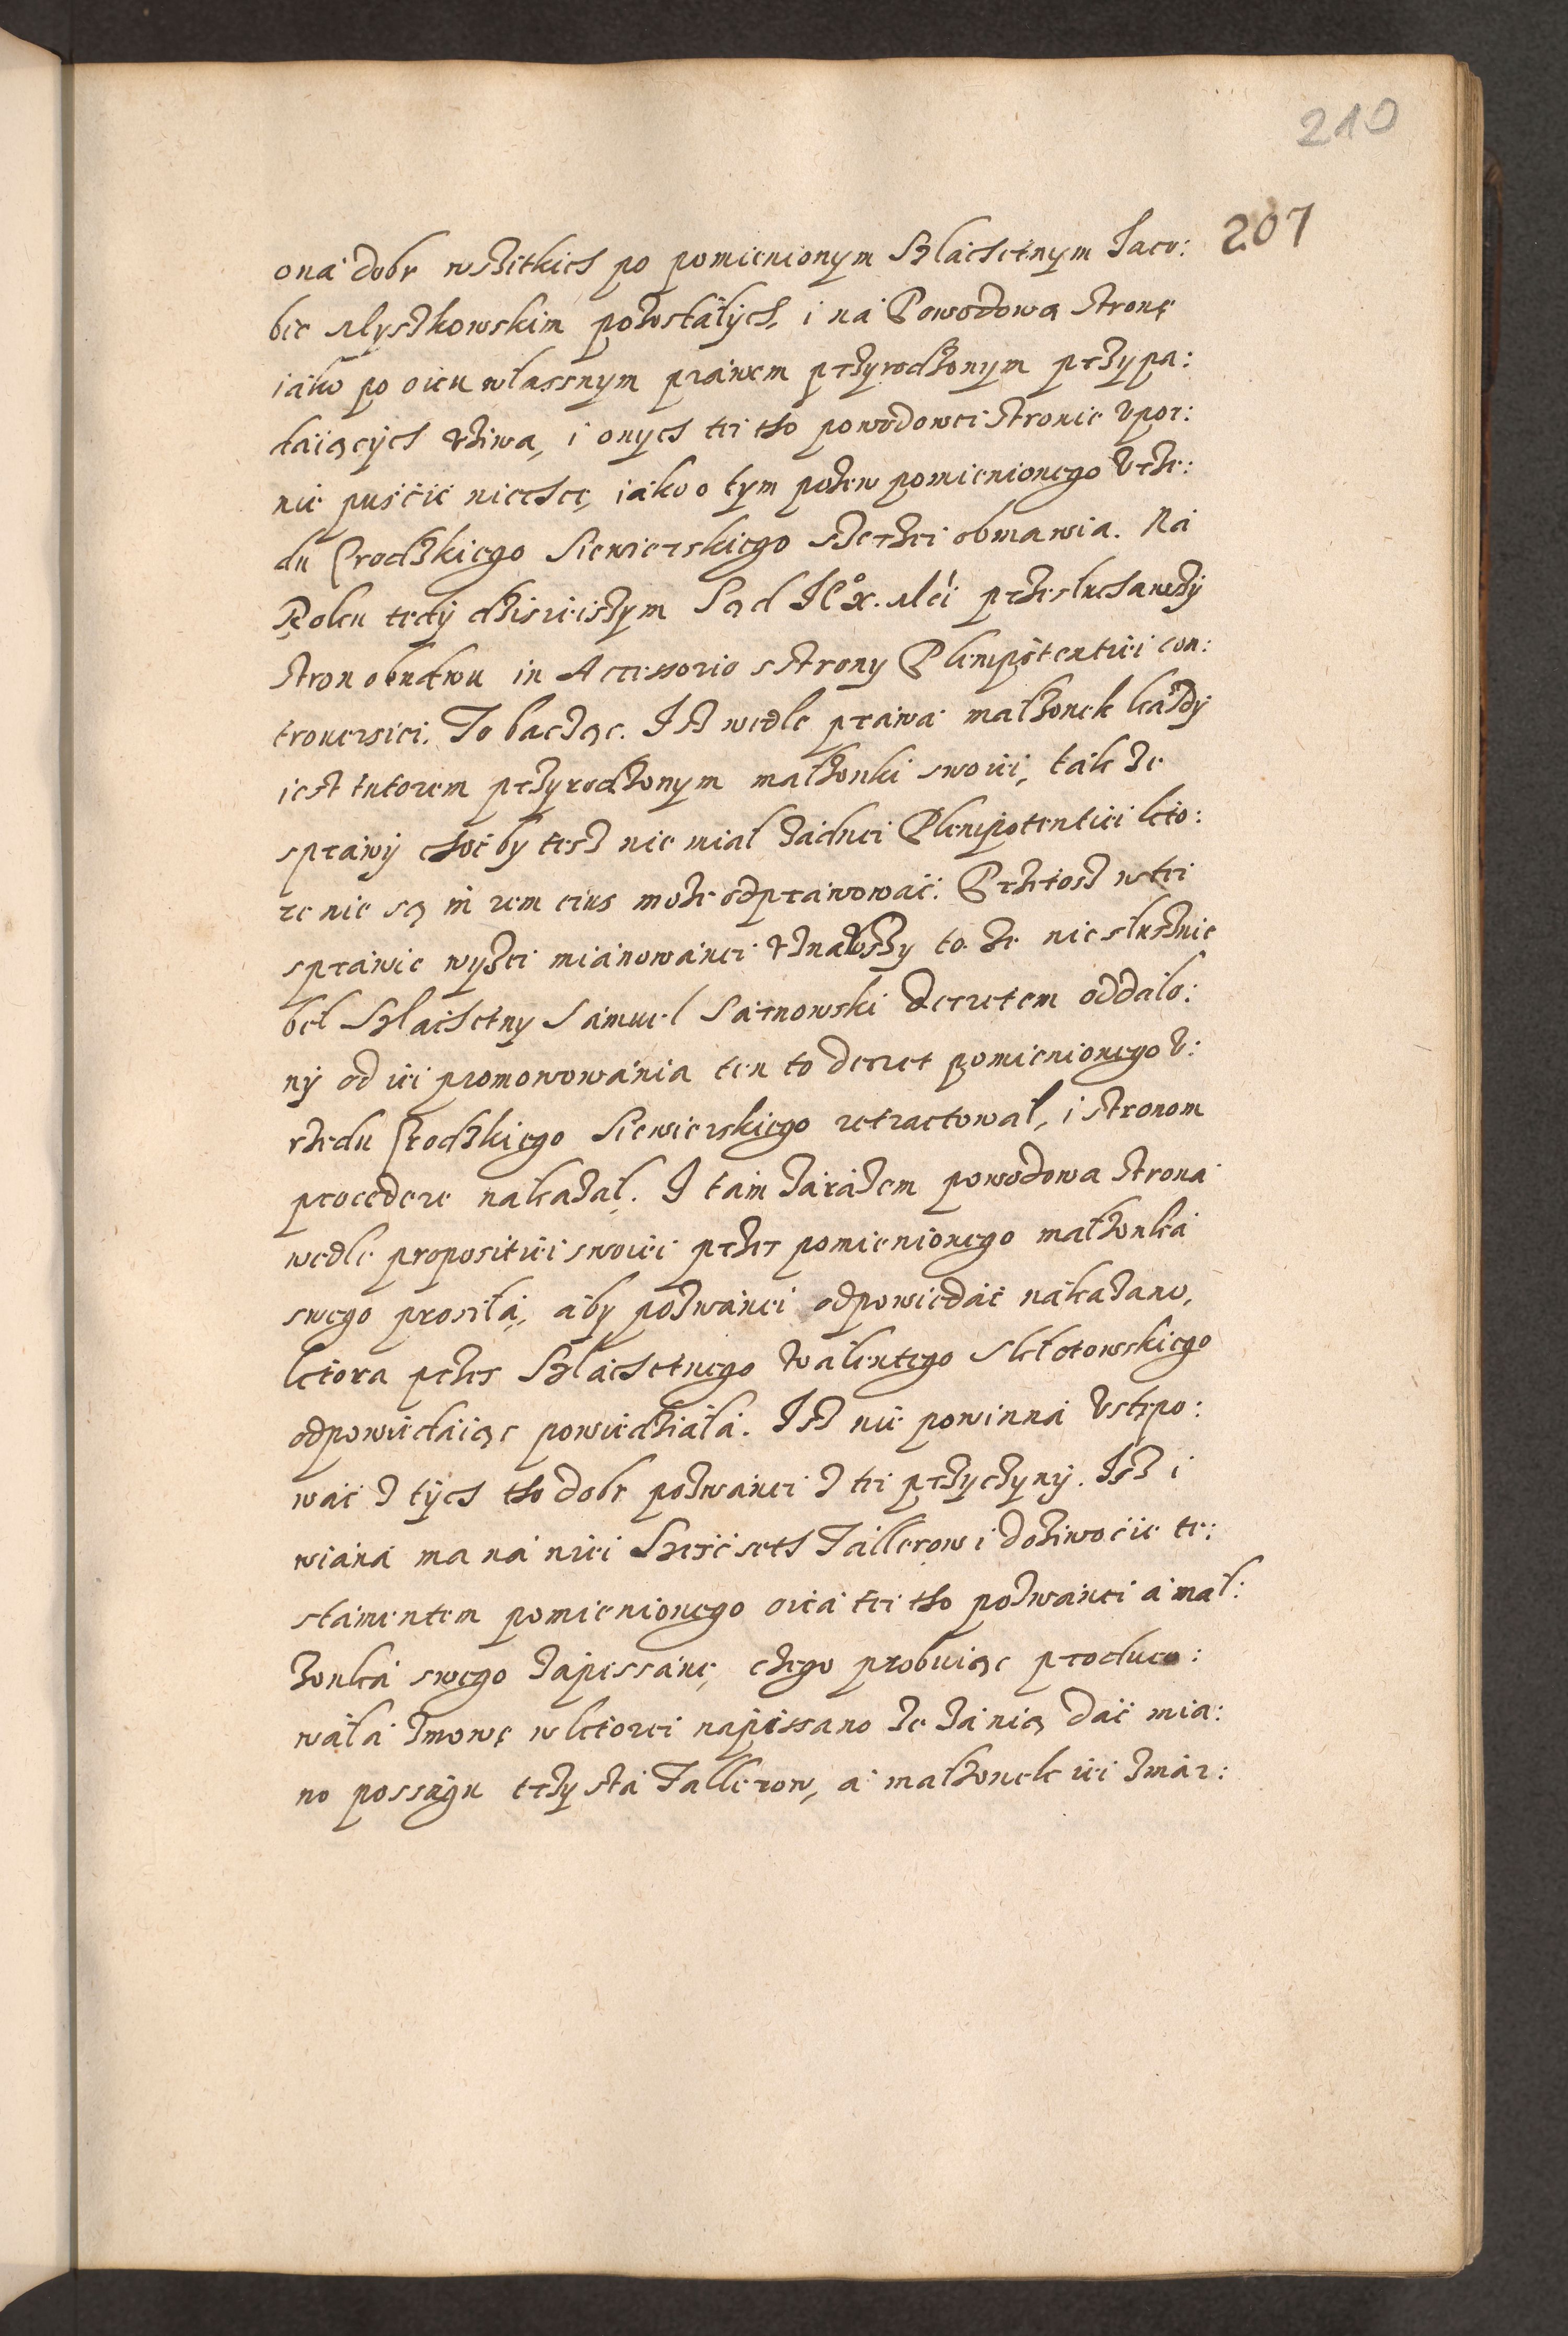 210
207
oná dobr wszitkich po pomienionym Szlachetnym Jaco:
bie Myszkowskim pozostałych, i ná Powodową stronę
iáko po oicu własnym práwem przyrodzonym przypa:
daiących vżiwa, i onych tei tho powodowei stronie vpor:
nie puścić niechce, iáko o tym pozew pomienionego Vrzę:
du Grodzkiego Siewierskiego szerzei obmawia. Ná
Roku tedy dzisieiszym Sąd JE° X. Mći przesłuchawszy
stron obudwu in Accessorio z strony Plenipotentiei con:
trouersiei. To bacząc. Isz wedle práwá małżonek każdy
iest tutorem przyrodzonym małżonki swoiei, ták że
spráwy choćby tesz nie miał żádnei Plenipotentiei kto:
re nie są in rem eius może odpráwować. Przetosz w tei
spráwie wyżei miánowánei vznáłszy to że niesłusznie
beł Szláchetny Sámuel Sárnowski decretem oddalo:
ny od iei promowowánia ten to decret pomienionego V:
rzędu Grodzkiego Siewierskiego retractował, i stronom
procedere nakazał. I tám zárázem powodowa stroná
wedle propositiei swoiei przez pomienionego małżonká
swego prosiłá, áby pozwánei odpowiedáć nákazano,
która przez Szláchetnego Walentego Skłotowskiego
odpowiedaiąc powiedziáłá. Isz nie powinná vstępo:
wáć z tych tho dobr pozwánei z tei przyczyny. Isz i
wiáná ma ná niei Sześć seth Tállerow i dożiwocie te:
stámentem pomienionego oicá tei tho pozwánei á mał:
żonká swego zápissáne, czego probuiąc produco:
wáłá zmowę w ktorei nápissano że zá nią dáć mia:
no posságu trzy stá Tallerow, á małżonek iei zmár: